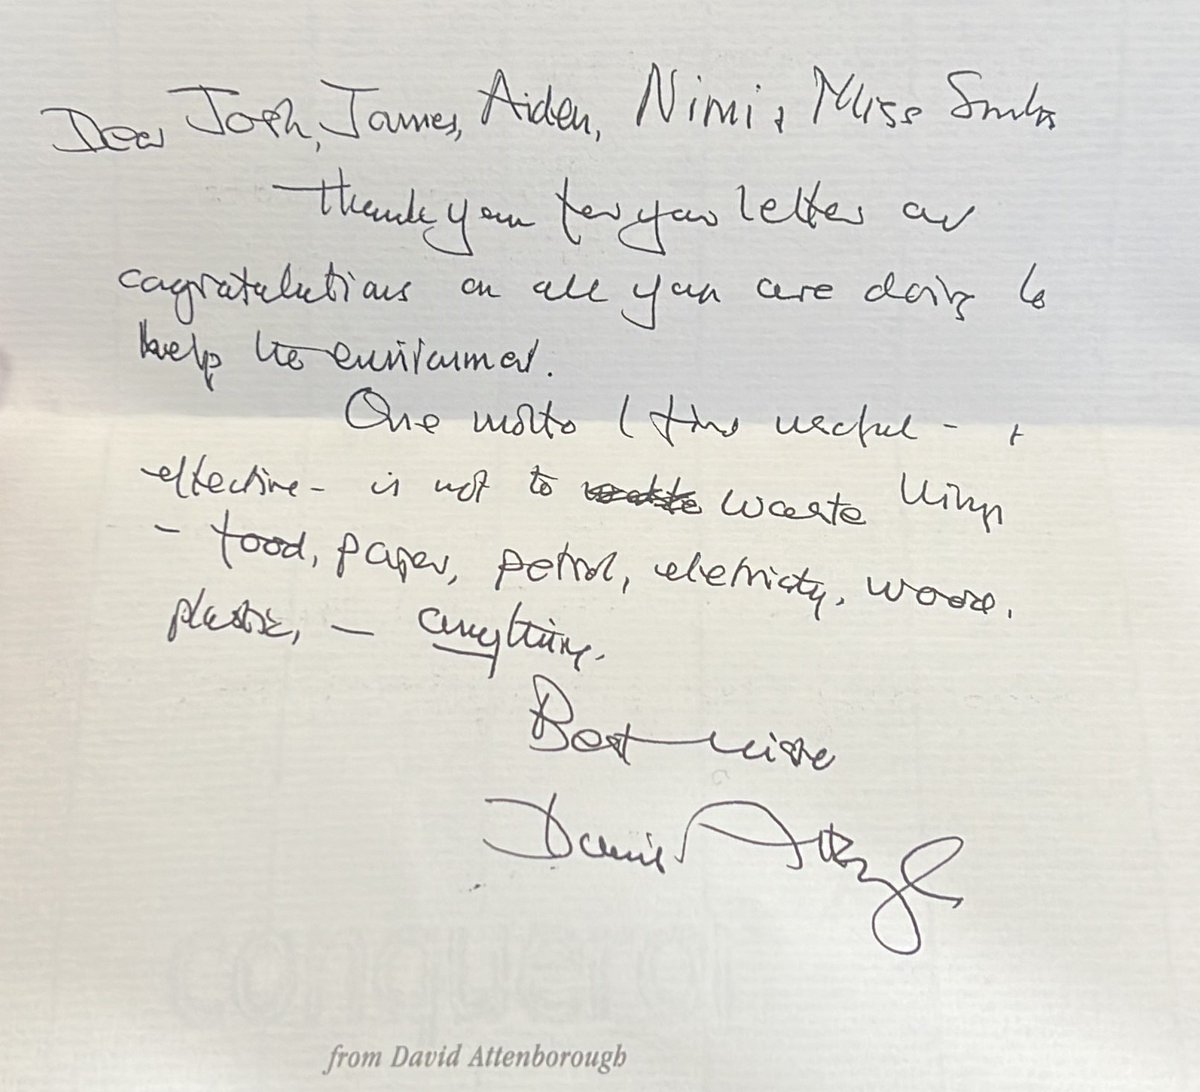 Dear Josh, James, Aiden, Nimi & Miss
Thank you for your letter and
congratulations on all you are doing to
help the environment.
One motto I find useful - +
effective - is not to waste things
- food, paper, petrol, electricity, wood,
plastic, - anything.
Best wishes
David Attenborough
conqueror
from David Attenborough